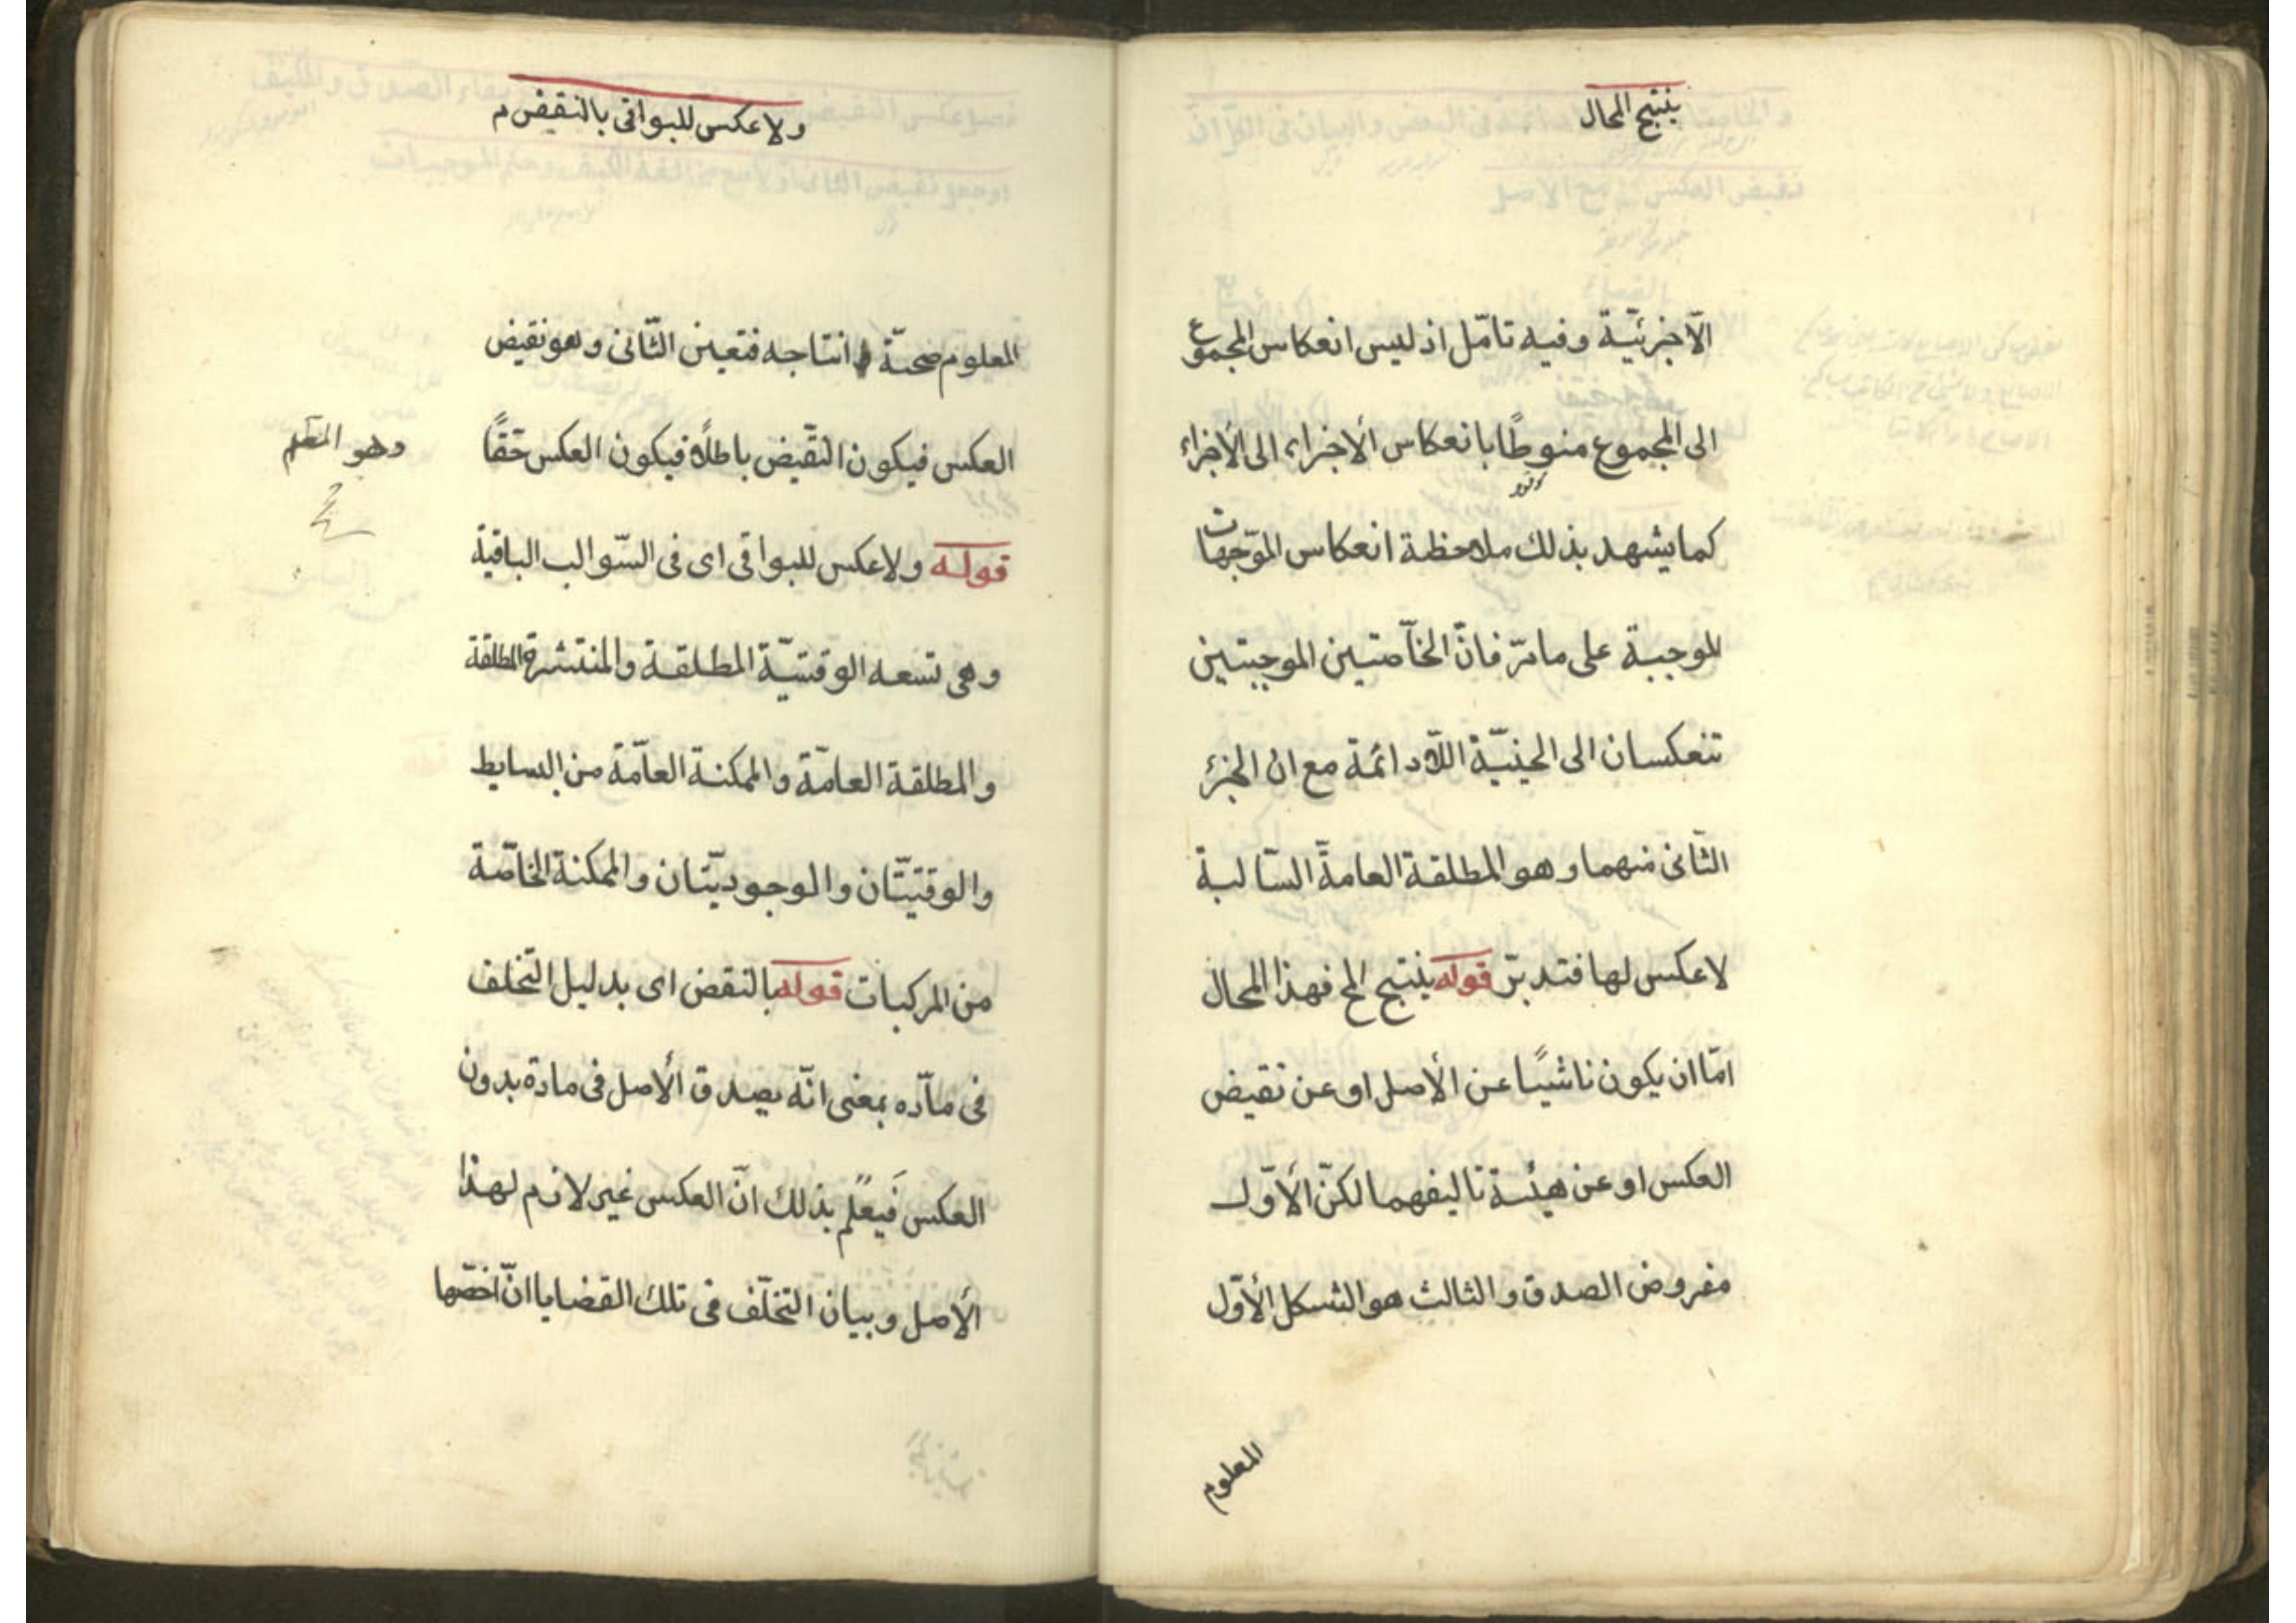 ينتج المحال
الّا جزئيّة وفيه تامّل اذ ليس انعكاس المجموع
الى المجموع منوطًا بانعكاس الأجزاء الى الأجزاء
كما يشهد بذلك ملاحظة انعكاس الموّجهات
الموجبة على مامرّ فانّ الخاّصتين الموجبتين
تنعكسان الى الحينيّة اللّادائمة مع ان الجزء
الثّانى منهما وهو المطلقة العامةّ السّالبة
لا عكس لها فتدبرّ قوله ينتج المح فهذا المحال
امّا ان يكون ناشيًا عن الأصل او عن نقيض
العكس او عن هيئة تاليفهما لكنّ الأوّل
مفروض الصدق والثالث هو الشكل الأوّل
المعلوم
ولا عكس للبواقى بالنقض م
المعلوم صحتّه انتاجه فتعين الثّانى وهو نقيض
العكس فيكون النقّيض باطلًا فيكون العكس حقًّا
وهو المط
قوله ولا عكس للبواقى اى فى السّوالب الباقية
وهى تسعه الوقتيّة المطلقة والمنتشرة المطلقة
والمطلقة العامّة والممكنة العامّة من البسايط
والوقتيّتان والوجوديّتان والممكنة الخاّصة
من المركبات قوله بالنقض اى بدليل التّخلف
فى ماّده بمعنى انّه يصدق الأصل فى مادة بدون
العكس فيعلم بذلك انّ العكس غير لازم لهذا
الأصل وبيان التخلّف فى تلك القضايا انّ اخصّها